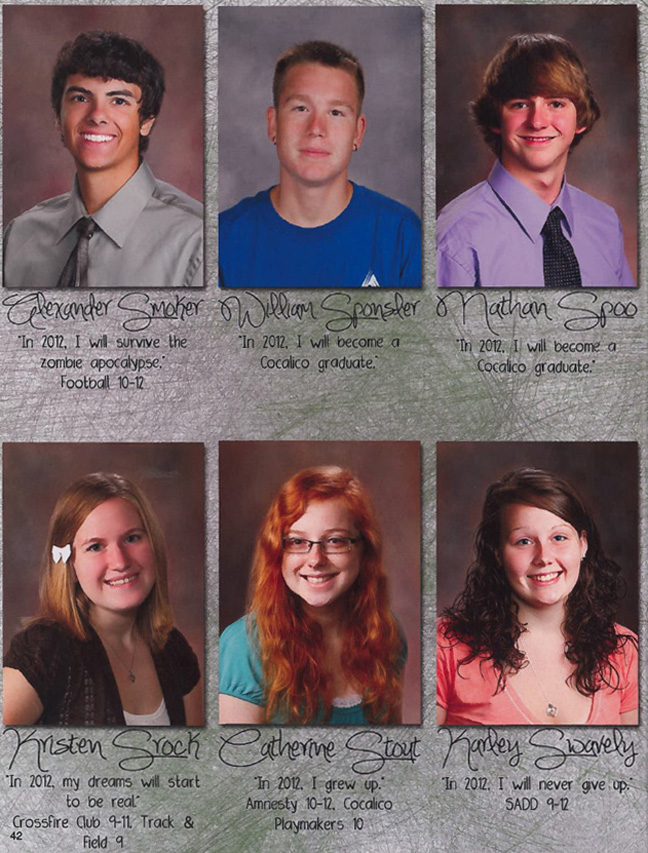 Alexander Smoker
"In 2012, I will survive the
zombie apocalypse."
Football 10-12
William Sponsler
"In 2012, I will become a
Cocalico graduate."
Nathan Spoo
"In 2012, I will become a
Cocalico graduate."
Kristen Srock
"In 2012, my dreams will start
to be real."
Crossfire Club 9-11, Track &
Field 9
Catherine Stout
"In 2012, I grew up."
Amnesty 10-12, Cocalico
Playmakers 10
Karley Swavely
"In 2012, I will never give up."
SADD 9-12
42